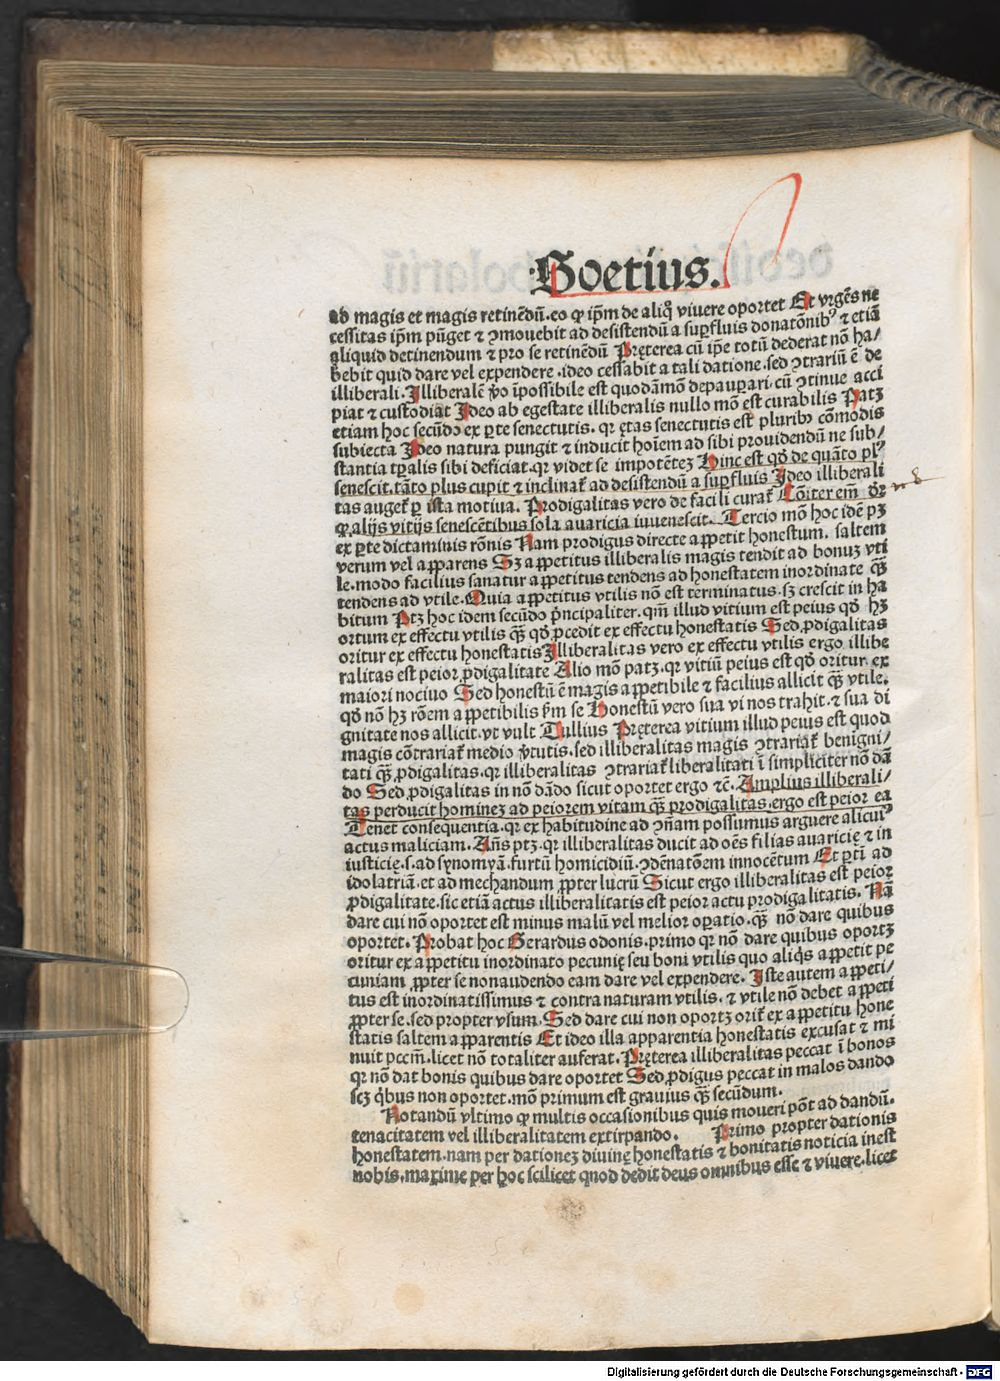 Boetius.
ad magis et magis retinẽdũ.eo ꝙ ip̃m de aliq̃ viuere oportet Et vrgẽs ne
cessitas ip̃m pũget ⁊ ꝯmouebit ad desistendũ a suꝑfluis donatõnibꝰ ⁊ etiã
aliquid detinendum ⁊ pro se retinẽdũ Pręterea cũ ip̃e totũ dederat nõ ha/
bebit quid dare vel expendere.ideo cessabit a tali datione.sed ꝯtrariũ ẽ de
illiberali.Illiberalẽ ṽo ĩpossibile est quodãmõ depauꝑari.cũ ꝯtinue acci
piat ⁊ custodiat Ideo ab egestate illiberalis nullo mõ est curabilis Patꝫ
etiam hoc secũdo ex ꝑte senectutis.qꝛ ętas senectutis est pluribꝰ cõmodis
subiecta Ideo natura pungit ⁊ inducit hoĩem ad sibi prouidendũ ne sub/
stantia tꝑalis sibi deficiat.qꝛ videt se impotẽteꝫ Hinc est qđ de quãto plꝰ
senescit.tãto plus cupit ⁊ inclinat̃ ad desistendũ a suꝑfluis Ideo illiberali
tas auget̃ ꝑ ista motiua. Prodigalitas vero de facili curat̃ Cõiter em̃ dr̃
ꝙ alijs vitijs senescẽtibus sola auaricia iuuenescit. Tercio mõ hoc idẽ pꝫ
ex ꝑte dictaminis rõnis Nam prodigus directe appetit honestum. saltem
verum vel apparens Sꝫ appetitus illiberalis magis tendit ad bonuꝫ vti
le.modo facilius sanatur appetitus tendens ad honestatem inordinate q̃ꝫ
tendens ad vtile.Quia appetitus vtilis nõ est terminatus.sꝫ crescit in ha
bitum Ptꝫ hoc idem secũdo pñcipaliter.qm̃ illud vitium est peius qđ hꝫ
ortum ex effectu vtilis q̃ꝫ qđ ꝓcedit ex effectu honestatis Sed ꝓdigalitas
oritur ex effectu honestatis Illiberalitas vero ex effectu vtilis ergo illibe
ralitas est peior ꝓdigalitate Alio mõ patꝫ.qꝛ vitiũ peius est qđ oritur ex
maiori nociuo Sed honestũ ẽ magis appetibile ⁊ facilius allicit q̃ꝫ vtile.
qđ nõ hꝫ rõem appetibilis ẜm se Honestũ vero sua vi nos trahit.⁊ sua di
gnitate nos allicit.vt vult Tullius Pręterea vitium illud peius est quod
magis cõtrariat̃ medio ṽtutis.sed illiberalitas magis ꝯtrariat̃ benigni/
tati q̃ꝫ ꝓdigalitas.qꝛ illiberalitas ꝯtrariat̃ liberalitati ĩ simpliciter nõ dã
do Sed ꝓdigalitas in nõ dãdo sicut oportet ergo ⁊c̃. Amplius illiberali/
tas perducit homineꝫ ad peiorem vitam q̃ꝫ prodigalitas.ergo est peior ea
Tenet consequentia.qꝛ ex habitudine ad ꝯñam possumus arguere alicuiꝰ
actus maliciam. Añs ptꝫ.qꝛ illiberalitas ducit ad oẽs filias auaricię ⁊ in
iusticię.s.ad symonyã.furtũ homicidiũ.ꝯdẽnatõem innocẽtum Et ꝑti ad
idolatriã.et ad mechandum ꝓpter lucrũ Sicut ergo illiberalitas est peior
ꝓdigalitate.sic etiã actus illiberalitatis est peior actu prodigalitatis. Nã
dare cui nõ oportet est minus malũ vel melior oꝑatio.q̃ꝫ nõ dare quibus
oportet. Probat hoc Gerardus odonis.primo qꝛ nõ dare quibus oportꝫ
oritur ex appetitu inordinato pecunię seu boni vtilis quo aliq̃s appetit pe
cuniam ꝓpter se non audendo eam dare vel expendere. Iste autem appeti/
tus est inordinatissimus ⁊ contra naturam vtilis.⁊ vtile nõ debet appeti
ꝓpter se.sed propter vsum.Sed dare cui non oportꝫ orit̃ ex appetitu hone
statis saltem apparentis Et ideo illa apparentia honestatis excusat ⁊ mi
nuit pccm̃.licet nõ totaliter auferat. Pręterea illiberalitas peccat ĩ bonos
qꝛ nõ dat bonis quibus dare oportet Sed ꝓdigus peccat in malos dando
scꝫ q̃bus non oportet.mõ primum est grauius q̃ꝫ secũdum.
Notandũ vltimo ꝙ multis occasionibus quis moueri põt ad dandũ.
tenacitatem vel illiberalitatem extirpando. Primo propter dationis
honestatem.nam per dationeꝫ diuinę honestatis ⁊ bonitatis noticia inest
nobis.maxime per hoc scilicet quod dedit deus omnibus esse ⁊ viuere.licet
Digitalisierung gefördert durch die Deutsche Forschungsgemeinschaft - DFG